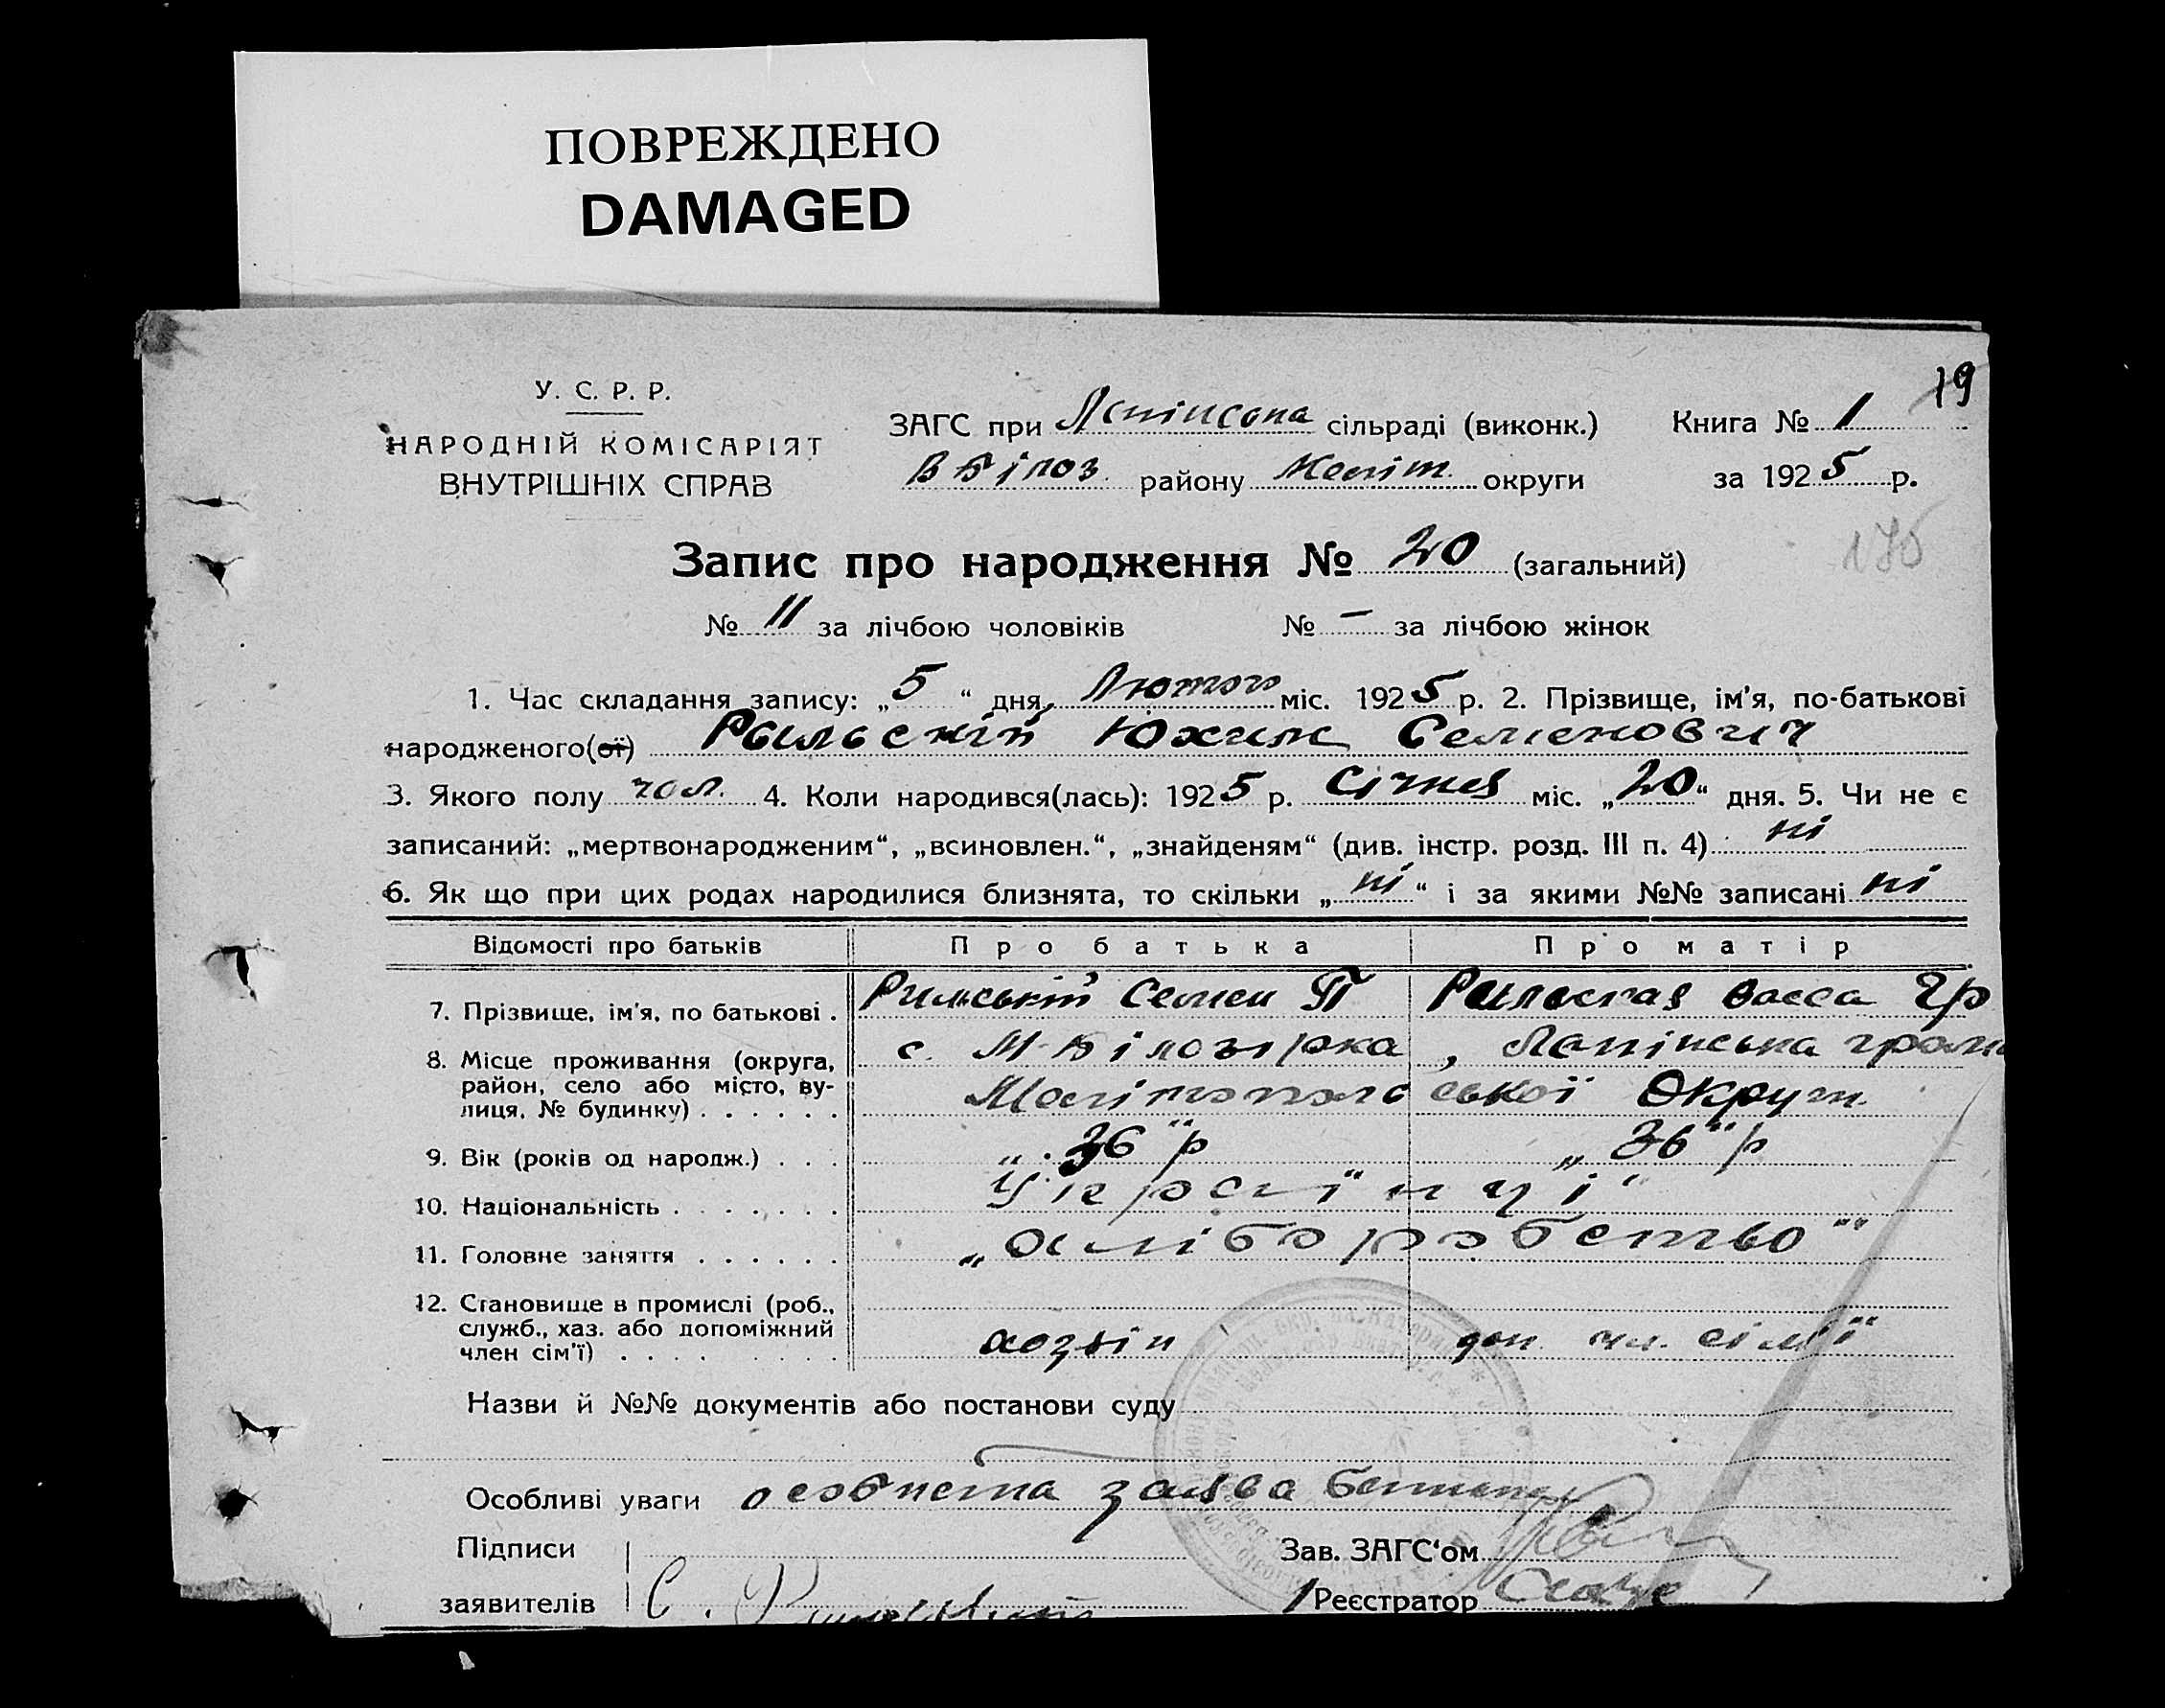 ПОВРЕЖДЕНО
DAMAGED
19
У. С. Р. Р.
НАРОДНІЙ КОМІСАРІЯТ
ВНУТРІШНІХ СПРАВ
ЗАГС при сільраді (виконк.)
В Білоз. району Меліт. округи
Книга № 1
за 1925 р.
Запис про народження № 20 (загальний)
№ 11 за лічбою чоловіків № – за лічбою жінок
1. Час складання запису: „5“ дня, Лютого міс. 1925 р. 2. Прізвище, ім'я, по-батькові
народженого(ої) Рыльскій Юхим Семенович
3. Якого полу чол. 4. Коли народився(лась): 1925 р. Січня міс. „20“ дня. 5. Чи не є
записаний: „мертвонародженим“, „всиновлен.“, „знайденям“ (див. інстр. розд. III п. 4) ні
6. Як що при цих родах народилися близнята, то скільки „ні“ і за якими №№ записані ні
Відомості про батьків Про батька Про матір
7. Прізвище, ім'я, по батькові . Рильській Семен П Рыльская Васса Гр
8. Місце проживання (округа, с. М-Білозьорка, грам
район, село або місто, ву-
лиця, № будинку) . . . . . . Мелітопольської Округи
9. Вік (років од народж.) . . . „36“ р „36“ р
10. Національність . . . . . . . Украінці
11. Головне заняття . . . . . . „хліборобство“
12. Становище в промислі (роб.,
служб., хаз. або допоміжний
член сім'ї) . . . . . . . . хозяін доп. чл. сімʼї
Назви й №№ документів або постанови суду
Особливі уваги особиста заява батька
Підписи
заявителів С.
Зав. ЗАГС'ом
Реєстратор